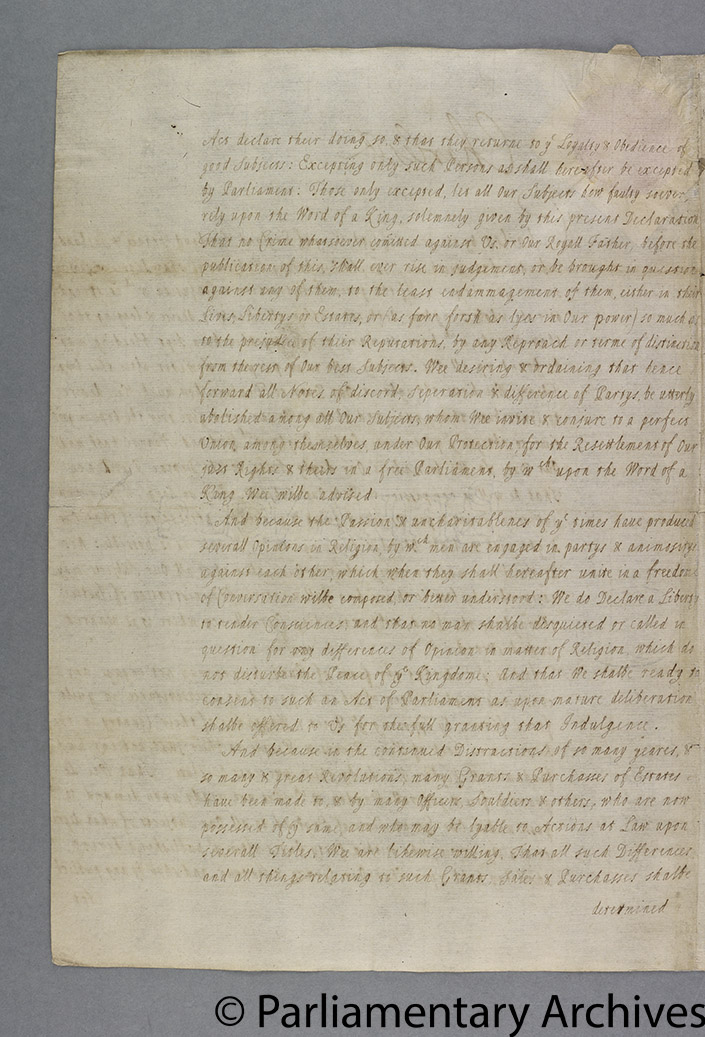 Act declare their doing so, & that they returne to yᵉ Loyalty & Obedience of
good Subjects: Excepting only such Persons as shall hereafter be excepted
by Parliament: Those only excepted, let all Our Subjects how faulty soever,
rely upon the Word of a King, solemnely given by this present Declaration
That no Crime whatsoever comitted against Us, or Our Royall Father, before the
publication of this, shall ever rise in judgement, or be brought in question
against any of them, to the least endammagement of them, either in their
Lives, Libertys or Estates, or (as farr forth as lyes in Our power) so much as
to the prejudice of their Reputations, by any Reproach or terme of distinction
from the rest of Our best Subjects. Wee desiring & ordaining that hence
forward all Notes of discord, seperation & difference of Partys, be utterly
abolished among all Our Subjects, whom Wee invite & conjure to a perfect
Union among themselves, under Our Protection, for the Resettlement of Our
just Rights & theirs in a free Parliament, by wᶜʰ upon the Word of a
King Wee wilbe advised
And because the Passion & uncharitablenes of yᵉ times have produced
severall Opinions in Religion, by wᶜʰ men are engaged in partys & animositys
against each other, which when they shall hereafter unite in a freedome
of Conversation wilbe composed, or better understood: We do Declare a Liberty
to tender Consciences, and that no man shalbe disquieted or called in
question for any differences of Opinion in matter of Religion, which do
not disturbe the Peace of yᵉ Kingdome; And that We shalbe ready to
consent to such an Act of Parliament as upon mature deliberation
shalbe offered to Us for the full granting that Indulgence.
And because in the continued Distractions of so many yeares, &
so many & great Revolutions, many Grants & Purchases of Estates
have been made to, & by many Officers, Souldiers & others, who are now
possessed of yᵉ same, and who may be lyable to Actions at Law upon
severall Titles, We are likewise willing, That all such Differences
and all things relating to such Grants, Sales, & Purchases shalbe
determined
© Parliamentary Archives